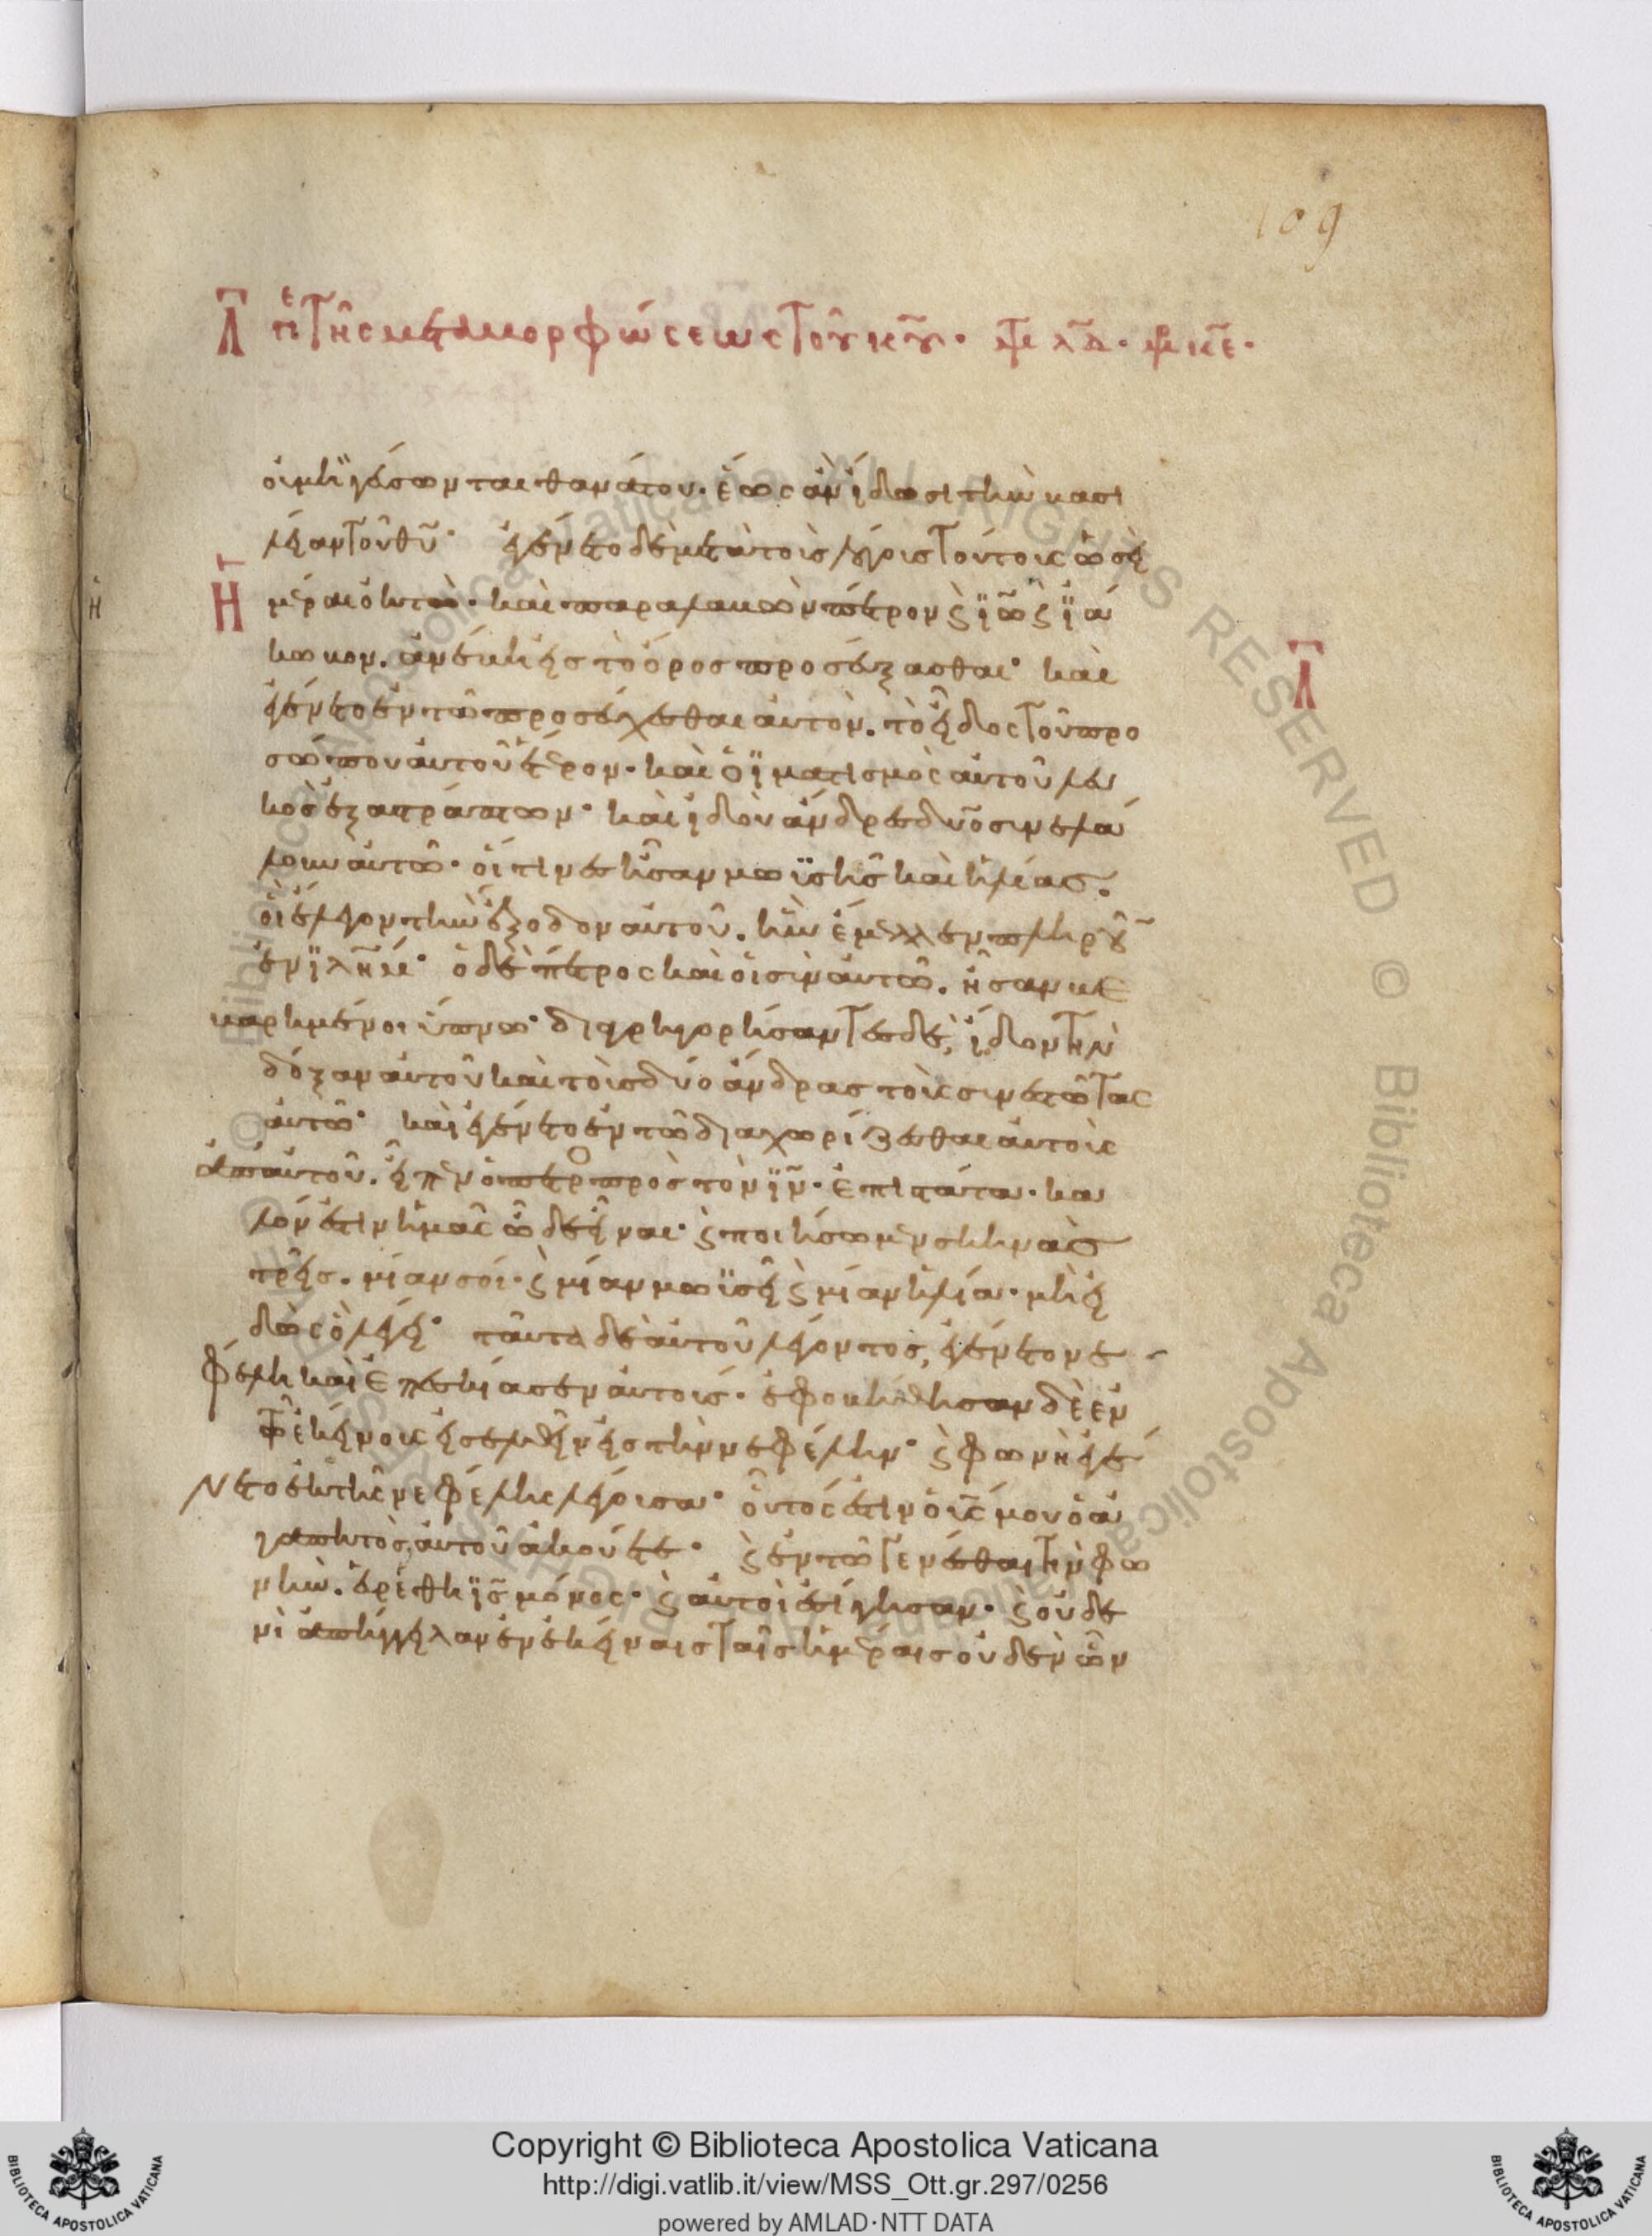 109
Λ̅ πε Τῆς μεταμορφώσεως τοῦ κυ̅· ψ λδ̅· ψ κε̅·
οἱ μὴ γεύσωνται θανάτου· ἕως ἂν ἴδωσι τὴν βασι
λείαν τοῦ θυ̅· ἐγένετο δὲ μετὰ τοὺς λόγους τούτους ὡσεὶ
ἡμέραι ὀκτὼ· καὶ παραλαβὼν πέτρον ϛ ϊω̅ ϛ ϊά
κωβον. ἀνέβη εἰς τὸ ὄρος προσεύξασθαι· καὶ
ἐγένετο ἐν τῶ προσεύχεσθαι αὐτὸν. τὸ εἶδος τοῦ προ
σώπου αὐτοῦ ἕτερον· καὶ ὁ ϊματισμὸς αὐτοῦ λευ
κὸς ἐξαστράπτων· καὶ ἰδοὺ ἄνδρες δύο συνελά
λουν αὐτῶ· οἵτινες ἦσαν μωϊσῆς καὶ ἡλίας.
οἳ ἔλεγον τὴν ἔξοδον αὐτοῦ. ἣν ἔμελλεν πληροῦ̅
ἐν ϊλη̅μ· ὁ δὲ πέτρος καὶ οἱ σὺν αὐτῶ. ἦσαν βε
βαρημένοι ὕπνω· διαγρηγορήσαντες δὲ, ἴδον τὴν
δόξαν αὐτοῦ καὶ τοὺς δύο ἄνδρας τοὺς συνεστῶτας
αὐτῶ· καὶ ἐγένετο ἐν τῶ διαχωρίζεσθαι αὐτοὺς
ἀπ αὐτοῦ. εἶπεν ὁ πέτρο πρὸς τὸν ϊν̅· ἐπιστάτα· κα
λόν ἐστιν ἡμᾶς ὧδε εἶναι· ϛ ποιήσωμεν σκηνὰς
τρεῖς. μίαν σοί· ϛ μίαν μωϊσεῖ ϛ μίαν ἡλία· μὴ εἰ
δὼς ὃ λέγει· ταῦτα δὲ αὐτοῦ λέγοντος, ἐγένετο νε
φέλη καὶ ἐπεσκίασεν αὐτοὺς· ἐφοβήθησαν δὲ ἐν
τῶ ἐκείνους εἰσελθεῖν εἰς τὴν νεφέλην· ϛ φωνὴ ἐγέ
νετο ἐκ τῆς νεφέλης λέγουσα· οὗτός ἐστιν ὁ υς̅ μου ὁ ἀ
γαπητὸς, αὐτοῦ ἀκούετε· ϛ ἐν τῶ γενέσθαι τὴν φω
νὴν. εὑρέθη ϊς̅ μόνος· ϛ αὐτοὶ ἐσίγησαν· ϛ οὐδε
νὶ ἀπήγγειλαν ἐν ἐκείναις ταῖς ἡμέραις οὐδὲν ὧν
Copyright © Biblioteca Apostolica Vaticana
http://digi.vatlib.it/view/MSS_Ott.gr.297/0256
powered by AMLAD·NTT DATA
BIBLIOTECA APOSTOLICA VATICANA
BIBLIOTECA APOSTOLICA VATICANA